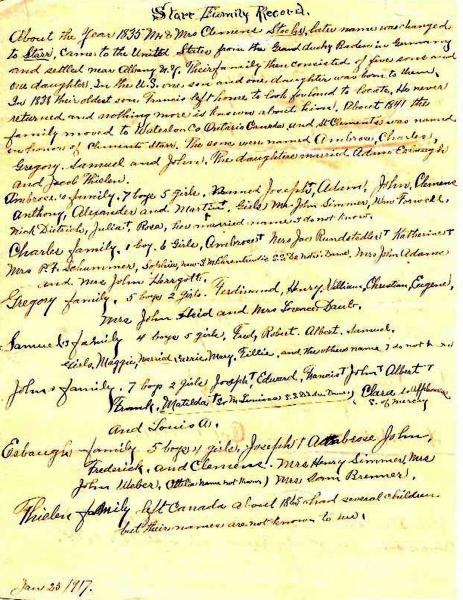 Starr Family Record.
About the Year 1835 Mr & Mrs Clemens Staebs, later name was changed
to Starr, came to the United States from the Grand duchy Baden in Germany
and settled near Albany N.Y. Their family then consisted of five sons and
one daughter. In the U.S. one son and one daughter was born to them.
In 1838 their oldest son Francis left home to look for land to locate, He never
returned and nothing more is known about him. About 1841 the
family moved to Waterloo Co Ontario Canada, and St Clements was named
in honor of Clements Starr. The sons were named Ambrose, Charles,
Gregory, Samuel and John, The daughters married Adam Esbaugh
and Jacob Thielen.
Ambrose's family. 7 boys 5 girls. Named Joseph† Adam† John, Clemens
Anthony, Alexander and Martin†. Girls Mrs John Simmer, Wm Farwell,
Nick Dietrich, Julia† Rosa, two married names I do not know.
Charles family. 1 boy. 6 Girls, Ambrose† Mrs Jos Rundstedler† Katherine†
Mrs P.F. Schummer, Sophia, S.S. De Notre Dame, Mrs John Adams
and Mrs John Herrgott.
Gregory family. 5 boys 2 girls. Ferdinand, Henry, William, Christian, Eugene,
Mrs John Heid and Mrs Lorence Daub.
Samuel's family 4 boys 5 girls, Fred, Robert. Albert, Samuel,
Girls, Maggie, married, Carrie, Mary, Tillie, and the others name I do not know
John's family. 7 boys 2 girls Joseph† Edward, Francis† John† Albert†
Frank, Matilda† Sr M. S.S De Notre Dame, Clara Sr Alphonse
and Louis A. S. of Mercy
Esbaugh family 5 boys 4 girls, Joseph† Ambrose, John,
Frederick, and Clemens. Mrs Henry Simmer, Mrs
John Weber, (name not known) Mrs Sam Brenner.
Thielen family left Canada about 1865 had several children
but their names are not known to me.
Jan 25 1917.